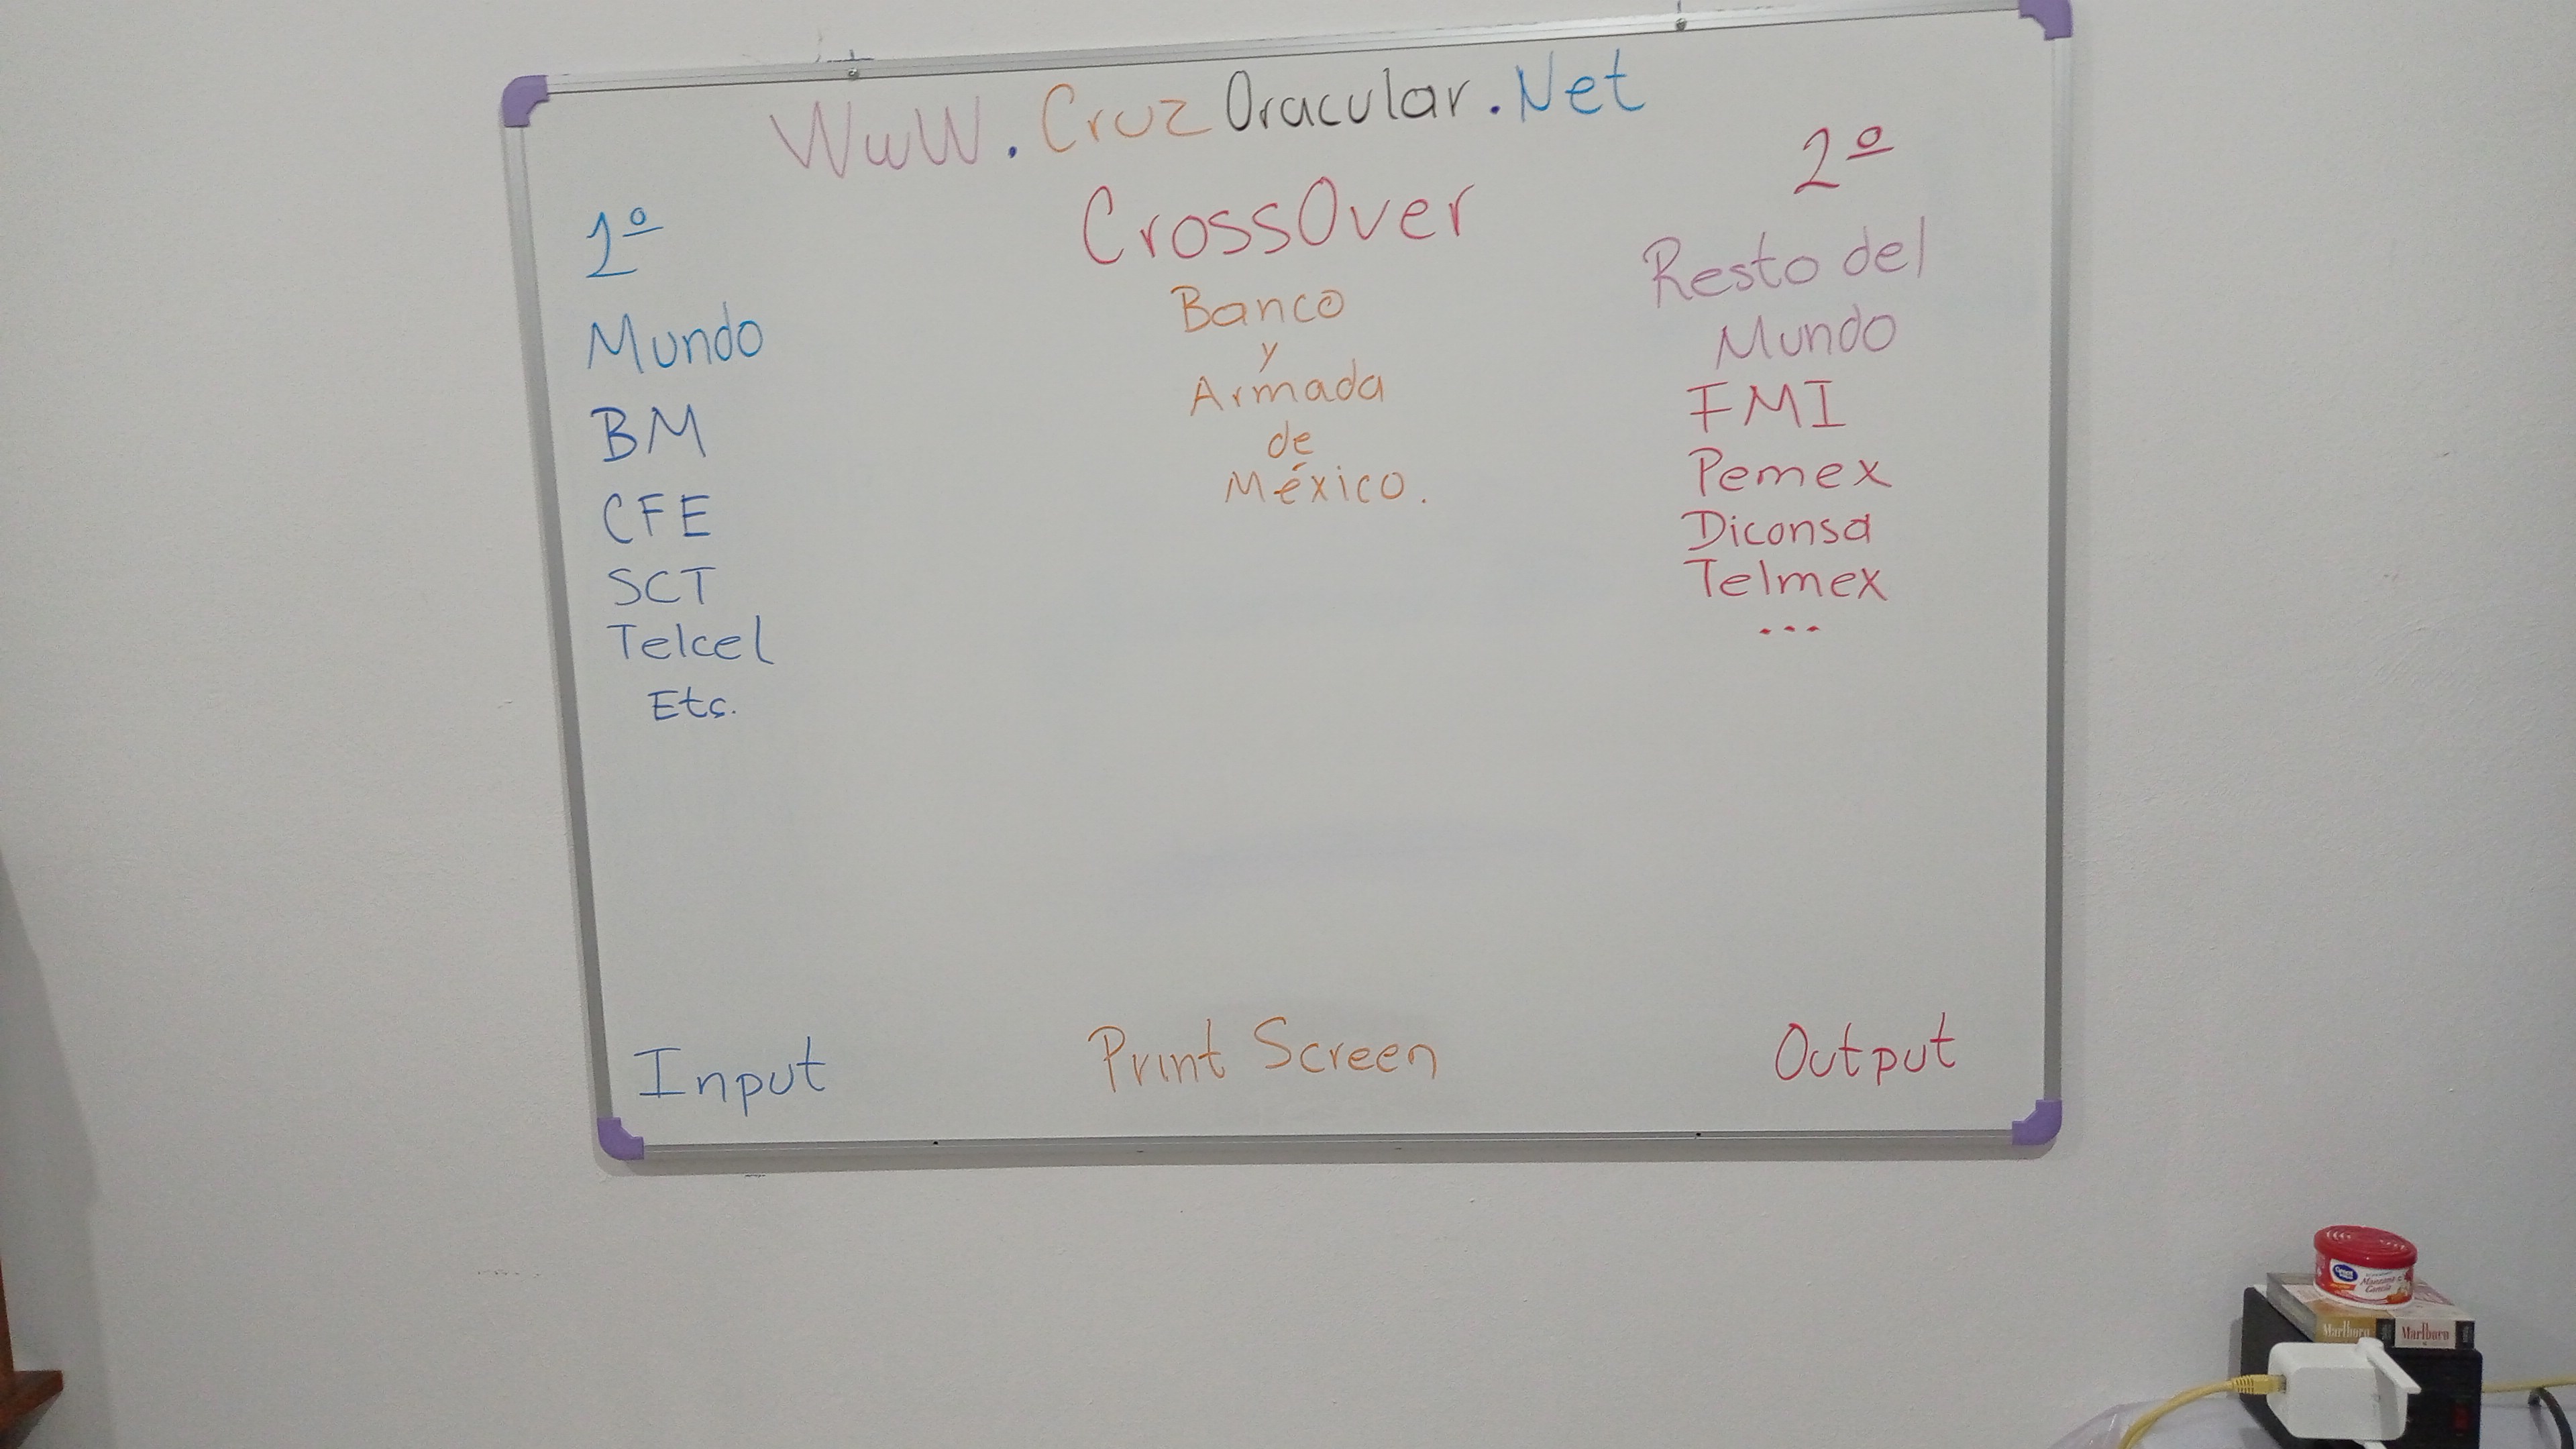 WwW.CruzOracular.Net
CrossOver
Banco
y
Armada
de
México.
1º
Mundo
BM
CFE
SCT
Telcel
Etc.
2º
Resto del
Mundo
FMI
Pemex
Diconsa
Telmex
...
Input
Print Screen
Output
Great Value
Manzana
Canela
Marlboro
Marlboro